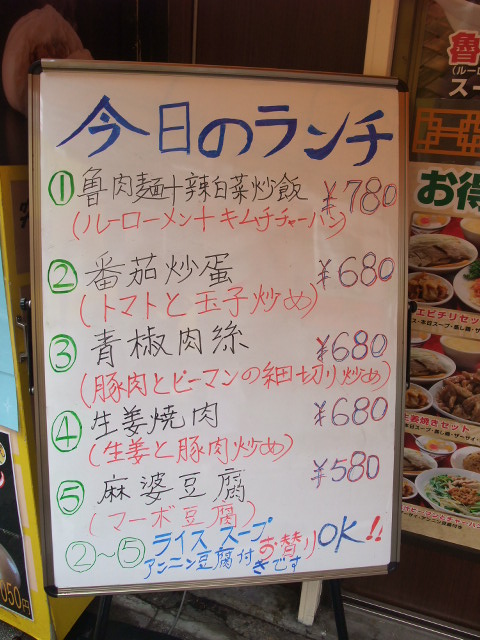 今日のランチ
① 魯肉麺+辣白菜炒飯 ¥780
(ルーローメン+キムチチャーハン)
② 番茄炒蛋 ¥680
(トマトと玉子炒め)
③ 青椒肉絲 ¥680
(豚肉とピーマンの細切り炒め)
④ 生姜焼肉 ¥680
(生姜と豚肉炒め)
⑤ 麻婆豆腐 ¥580
(マーボ豆腐)
②〜⑤ ライス スープ お替り OK!!
アンニン豆腐付きです
魯
(ルーロー
スー
お得
エビチリセッ
生姜焼きセット
050円